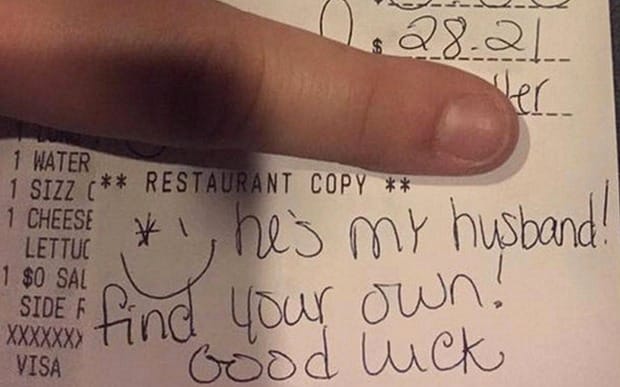 $ 28.21
1 WATER
1 SIZZ C
** RESTAURANT COPY **
1 CHEESE
LETTUC
1 $0 SAL
SIDE F
XXXXXXX
VISA
he's my husband!
find your own!
Good luck